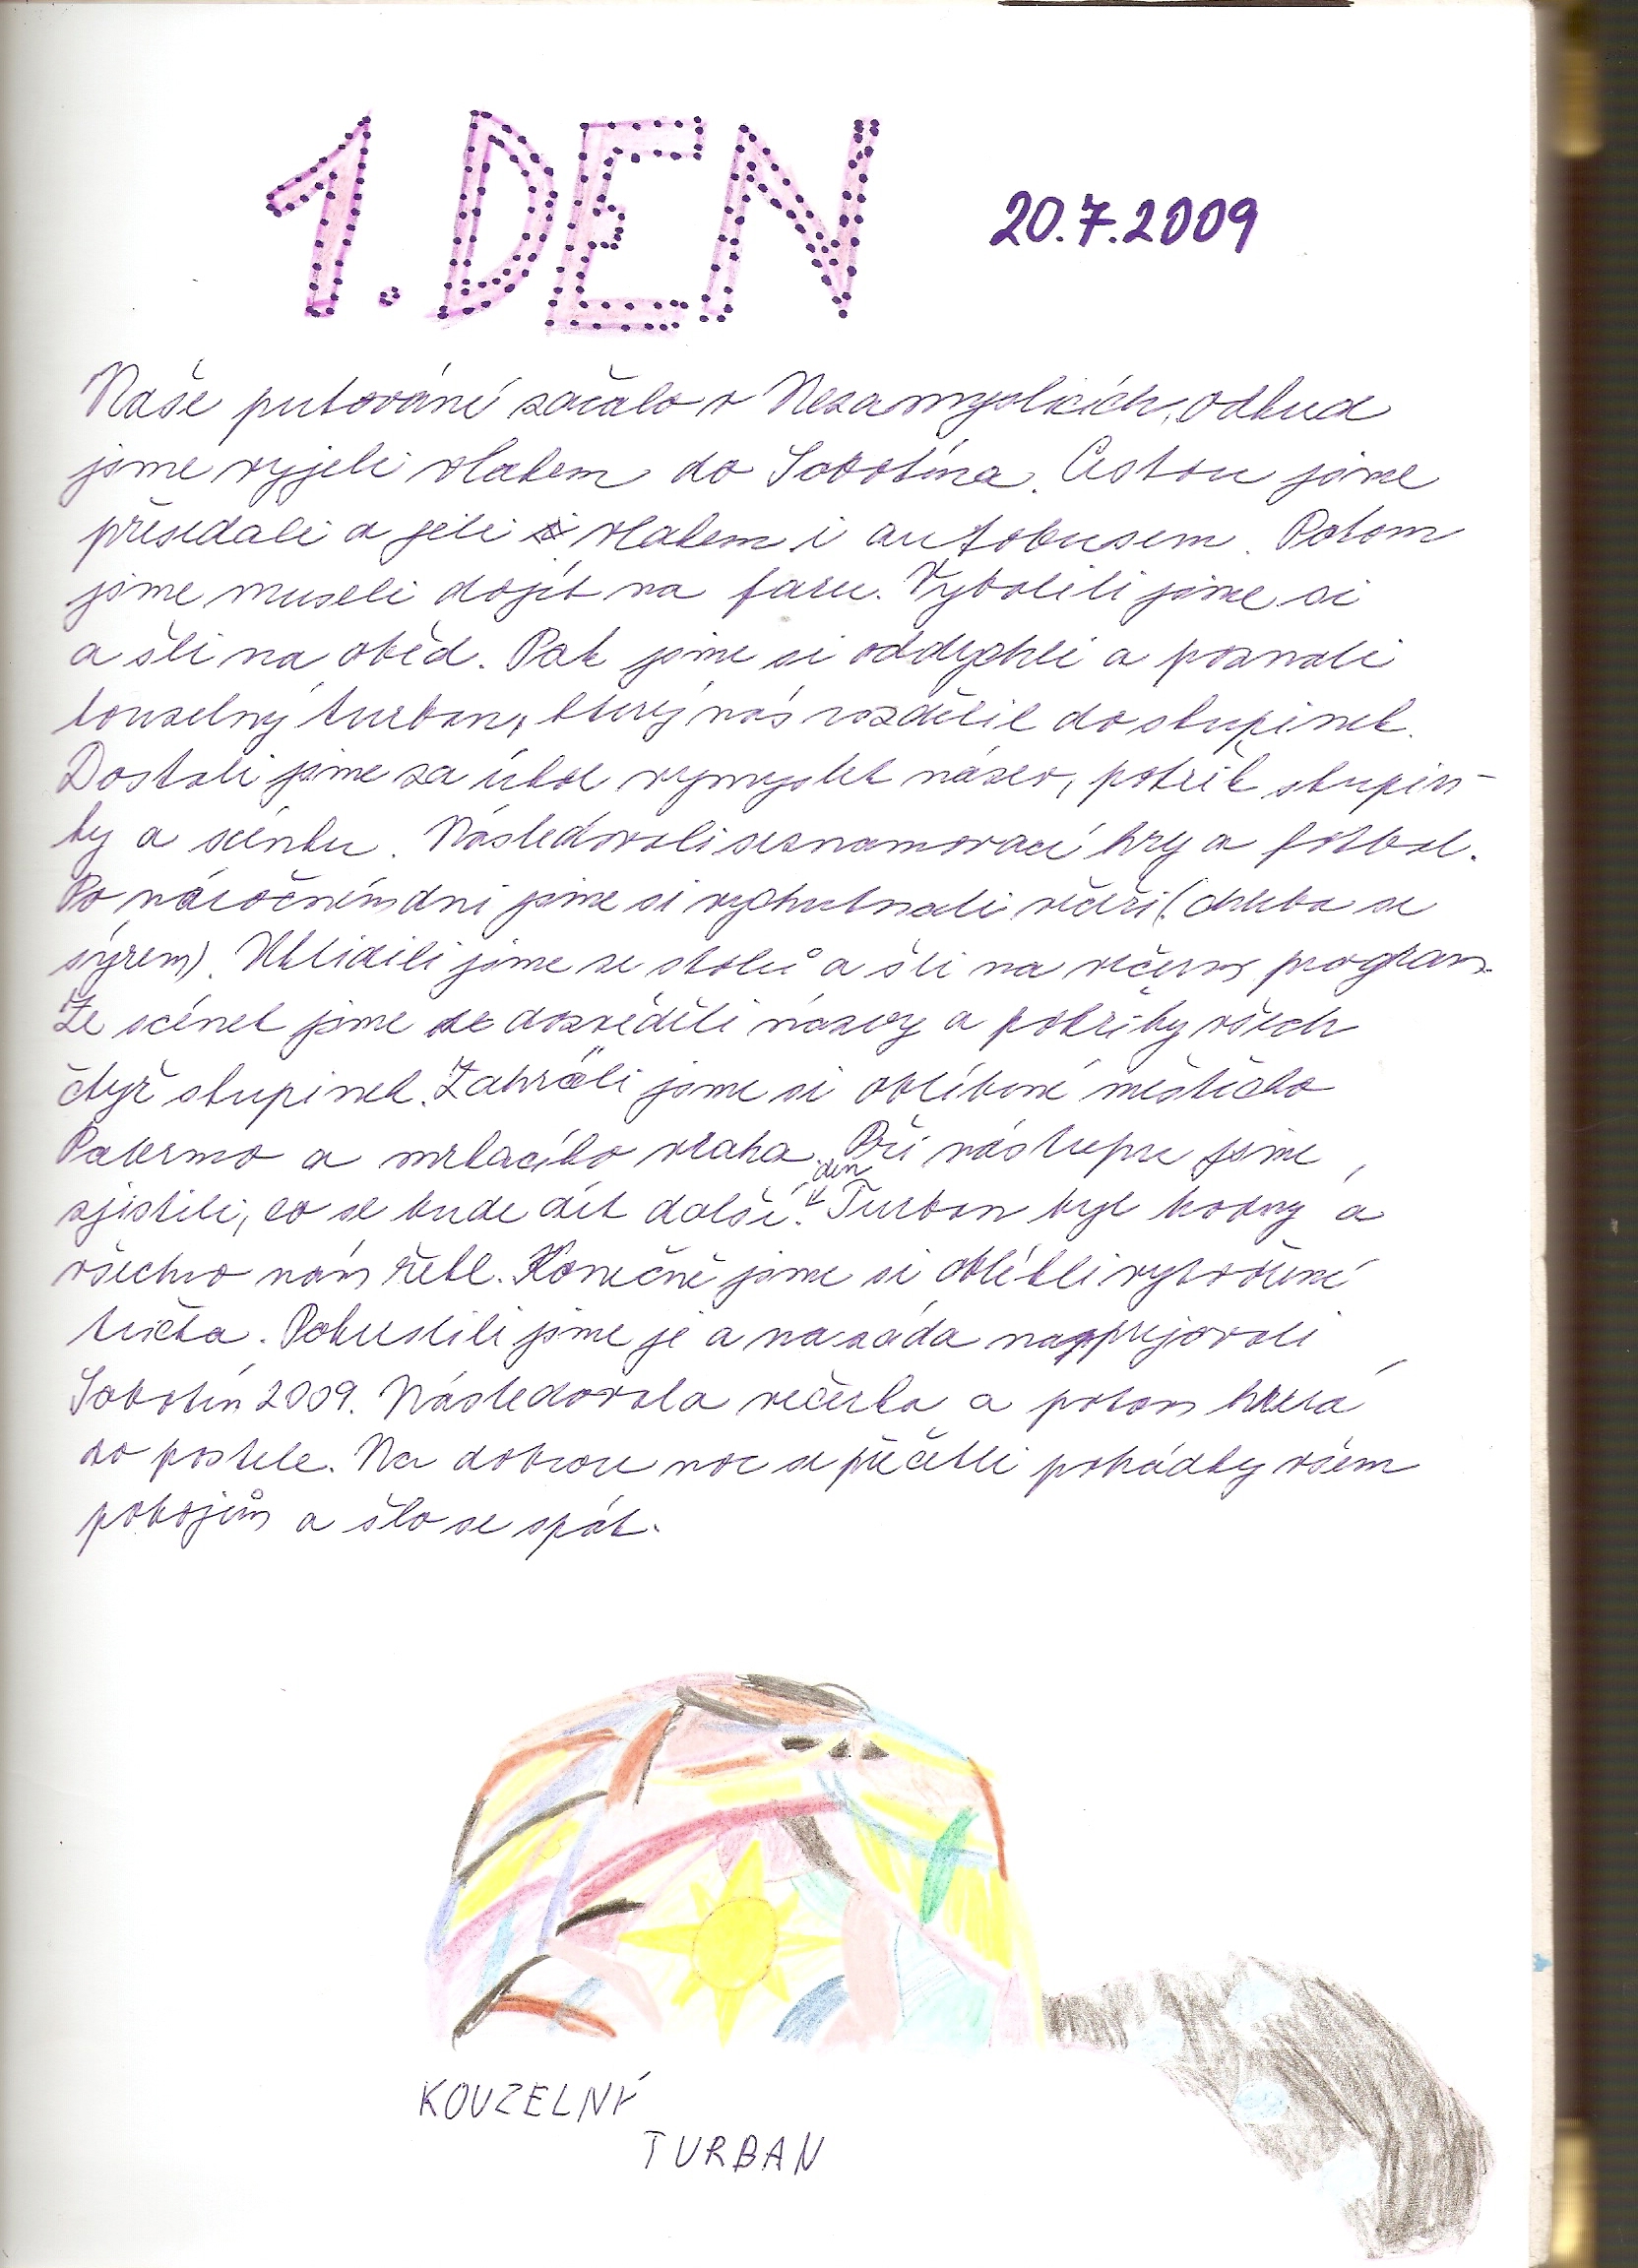 1. DEN
20.7.2009
Naše putování začalo v Nezamyslicích, odkud
jsme vyjeli vlakem do Sobotína. Cestou jsme
přesedali a jeli vlakem i autobusem. Potom
jsme museli dojít na faru. Vybalili jsme si
a šli na oběd. Pak jsme si oddychli a poznali
kouzelný turban, který nás rozdělil do skupinek.
Dostali jsme za úkol vymyslet název, pokřik skupin-
ky a scénku. Následovali seznamovací hry a fotbal.
Po náročném dni jsme si vychutnali večeři (chleba se
sýrem). Uklidili jsme ze stolů a šli na večerní program.
Ze scének jsme se dozvěděli názvy a pokřiky všech
čtyř skupinek. Zahráli jsme si oblíbené městečko
Palermo a mrkacího vraha. Při nástupu jsme
zjistili, co se bude dít další den. Turban byl hodný a
všechno nám řekl. Konečně jsme si oblékli vytvořené
trička. Pokustili jsme je a na záda nasprejovali
Sobotín 2009. Následovala večerka a potom hurá
do postele. Na dobrou noc se přečetli pohádky všem
pokojům a šlo se spát.
KOUZELNÝ
TURBAN